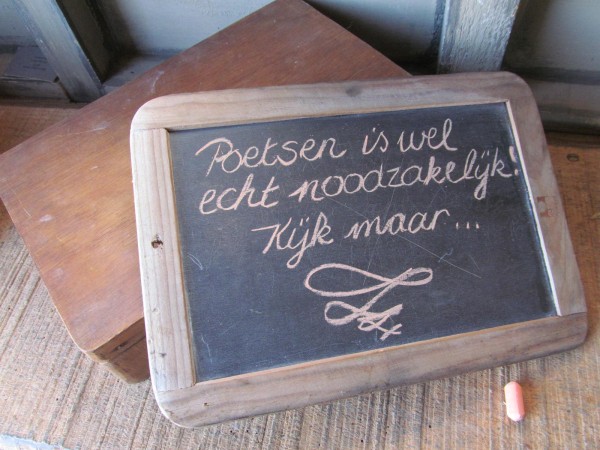 Poetsen is wel
echt noodzakelijk!
Kijk maar...